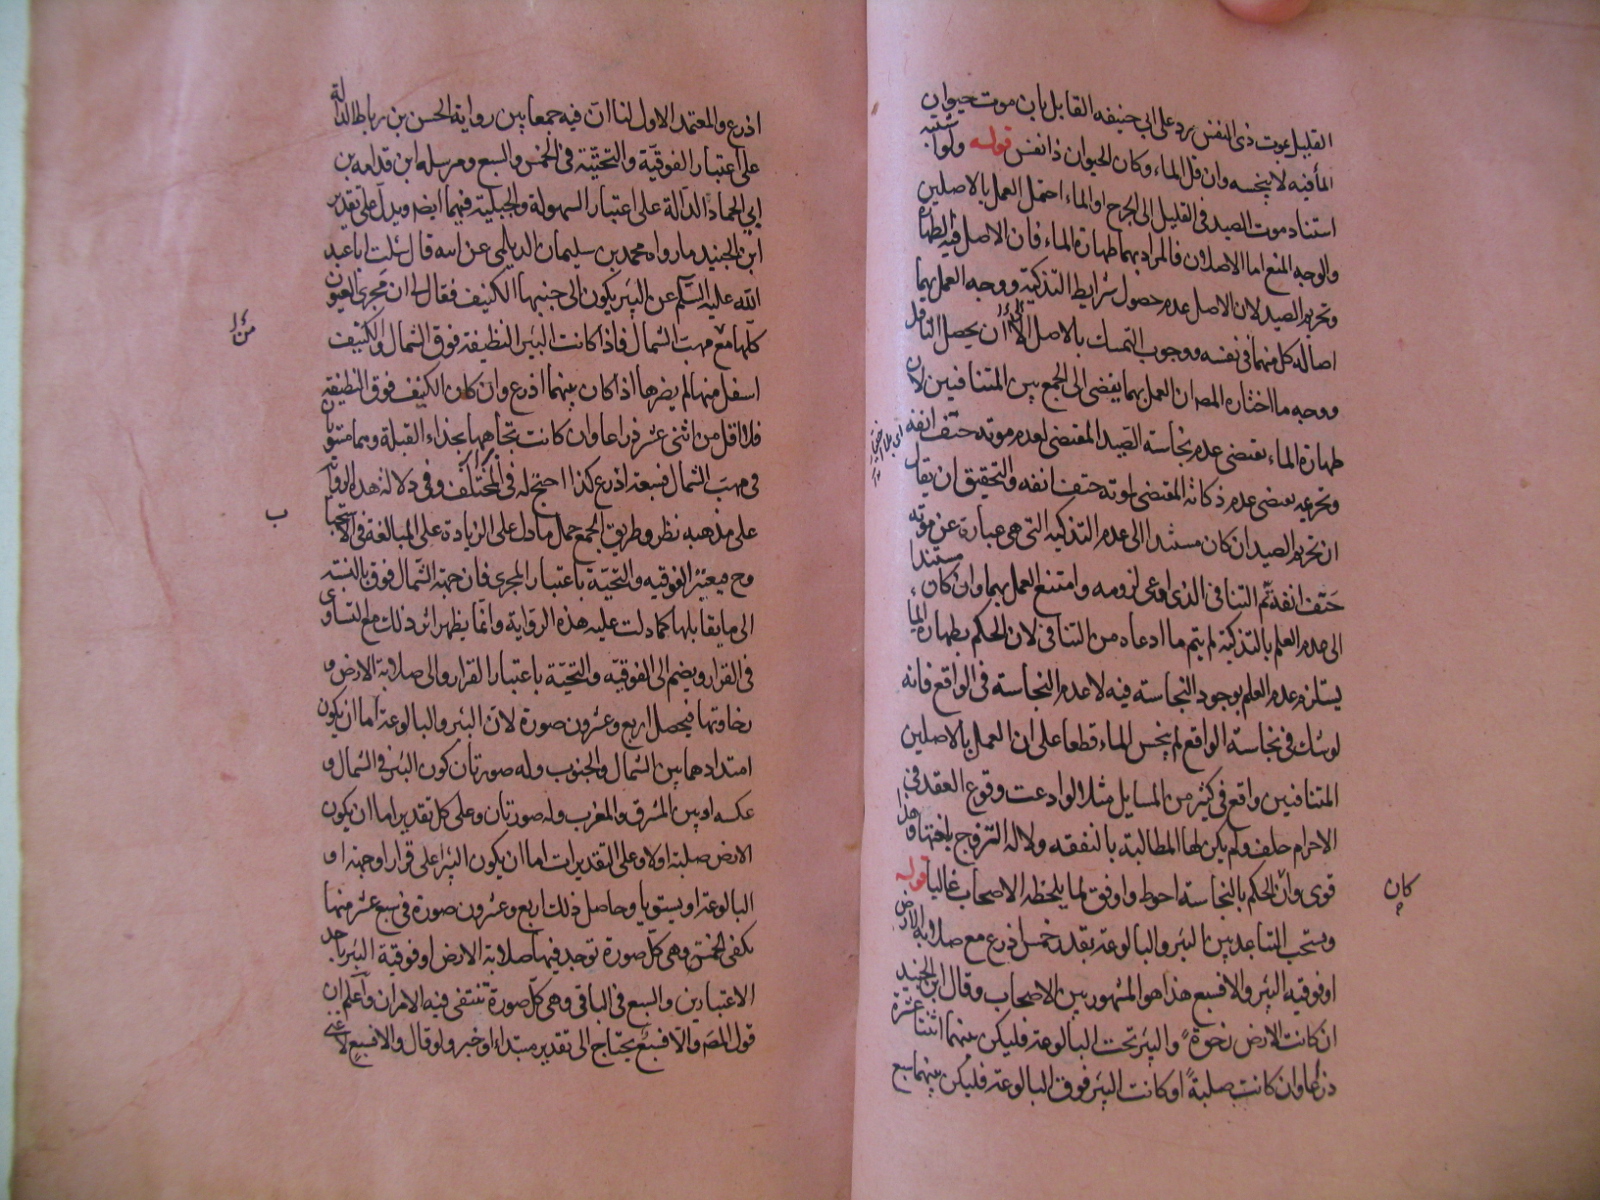 القليل بموت ذى النفس يرد على ابى حنيفه القايل بان موت حيوان
المأ فيه لا ينجسه وان قل الماء وكان الحيوان ذا نفس قوله ولو اشتبه
استناد موت الصيد فى القليل الى الجرح او الماء احتمل العمل بالاصلين
والوجه المنع اما الاصلان فالمراد بهما طهارة الماء فان الاصل فيه الطهارة
وتحريم الصيد لان الاصل عدم حصول شرايط التذكية ووجه العمل بهما
اصالة كل منهما فى نفسه ووجوب التمسك بالاصل الى ان يحصل الناقل
ووجه ما اختاره المص ان العمل بهما يفضى الى الجمع بين المتنافيين لان
طهارة الماء يقتضى عدم نجاسة الصيد المقتضى لعدم موته حتف انفه
وتحريمه يقتضى عدم ذكاته المقتضى لموته حتف انفه والتحقيق ان يقال
ان تحريم الصيد ان كان مستندا الى عدم التذكية التى هى عبارة عن موته
حتف انفه تم التنافى الذى ادعى لزومه وامتنع العمل بهما وان كان مستندا
الى عدم العلم بالتذكية لم يتم ما ادعاه من التنافى لان الحكم بطهارة الماء
يستلزم عدم العلم بوجود النجاسة فيه لا عدم النجاسة فى الواقع فانه
لو شك فى نجاسة الواقع لم ينجس الماء قطعا على ان العمل بالاصلين
المتنافيين واقع فى كثير من المسايل مثلا لو ادعت وقوع العقد فى
الاحرام حلف ولم يكن لها المطالبة بالنفقه ولا له التزوج باختها وهذا
قوى وان الحكم بالنجاسة احوط واوفق لما يلحظه الاصحاب غالبا قوله
كان
ويستحب التباعد بين البئر والبالوعة بقدر خمس اذرع مع صلابة الارض
او فوقيه البئر والا فسبع هذا هو المشهور بين الاصحاب وقال ابن الجنيد
ان كانت الارض رخوة والبئر تحت البالوعة فليكن بينهما اثنتا عشرة
ذراعا وان كانت صلبة او كانت البئر فوق البالوعة فليكن بينهما سبع
اذرع والمعتمد الاول لنا ان فيه جمعا بين رواية الحسن بن رباط الدالة
على اعتبار الفوقية والتحتية فى الخمس والسبع ومرسله ابن قدامه بن
ابى الحماد الدالة على اعتبار السهولة والجبلية فيهما ايضا ويدل على تقدير
ابن الجنيد ما رواه محمد بن سليمان الديلمى عن ابيه قال سئلت ابا عبد
الله عليه السلم عن البئر يكون الى جنبها الكنيف فقال لى ان مجرى العيون
كلها مع مهب الشمال فاذا كانت البئر النظيفة فوق الشمال والكنيف
اسفل منها لم يضرها اذا كان بينهما اذرع وان كان الكنيف فوق النظيفة
فلا اقل من اثنى عشر ذراعا وان كانت تجاهها بحذاء القبلة وهما مستويان
فى مهب الشمال فسبعة اذرع كذا احتج له فى المختلف وفى دلالة هذه الرواية
ب
على مذهبه نظر وطريق الجمع حمل ما دل على الزيادة على المبالغة فى الاستحباب
وح فيعتبر الفوقيه والتحتية باعتبار المجرى فان جهة الشمال فوق بالنسبة
الى ما يقابلها كما دلت عليه هذه الرواية وانما يظهر اثر ذلك مع التساوى
فى القرار ويضم الى الفوقية والتحتية باعتبار القرار والى صلابة الارض و
رخاوتها فيحصل اربع وعشرون صورة لان البئر والبالوعة اما ان يكون
امتدادهما بين الشمال والجنوب وله صورتان كون البئر فى الشمال و
عكسه او بين المشرق والمغرب وله صورتان وعلى كل تقدير اما ان يكون
الارض صلبة او لا وعلى التقديرات اما ان يكون البئر اعلى قرارا وجهة او
البالوعة او يستويا وحاصل ذلك اربع وعشرون صورة فى سبع عشر منها
يكفى الخمس وهى كل صورة توجد فيها صلابة الارض او فوقية البئر باحد
الاعتبارين والسبع فى الباقى وهى كل صورة تنتفى فيه الامران واعلم ان
قول المص والا فسبع يحتاج الى تقدير مبتداء او خبر ولو قال والا فسبع لاغنى